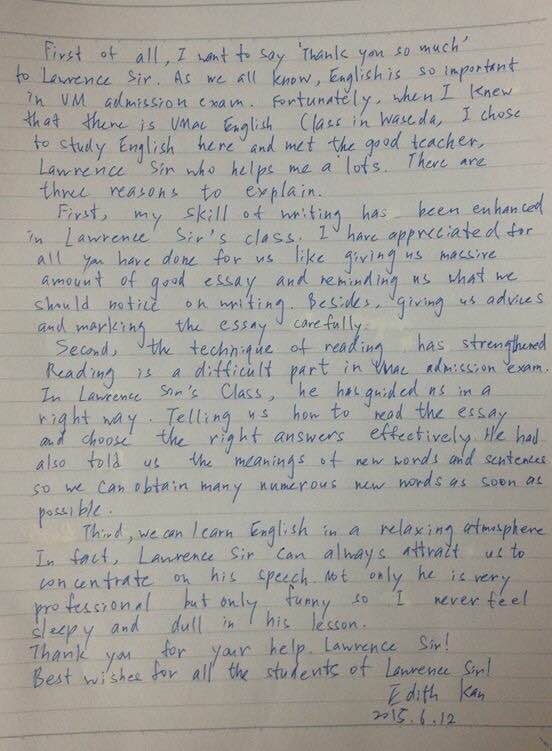 First of all, I want to say 'Thank you so much'
to Lawrence Sir. As we all know, English is so important
in UM admission exam. Fortunately, when I knew
that there is UMac English Class in Waseda, I chose
to study English here and met the good teacher,
Lawrence Sir who helps me a lots. There are
three reasons to explain.
First, my skill of writing has been enhanced
in Lawrence Sir's class. I have appreciated for
all you have done for us like giving us massive
amount of good essay and reminding us what we
should notice on writing. Besides, giving us advices
and marking the essay carefully.
Second, the technique of reading has strengthened
Reading is a difficult part in UMac admission exam.
In Lawrence Sir's Class, he has guided us in a
right way. Telling us how to read the essay
and choose the right answers effectively. He had
also told us the meanings of new words and sentences
so we can obtain many numerous new words as soon as
possible.
Third, we can learn English in a relaxing atmosphere
In fact, Lawrence Sir can always attract us to
concentrate on his speech. Not only he is very
professional but only funny so I never feel
sleepy and dull in his lesson.
Thank you for your help. Lawrence Sir!
Best wishes for all the students of Lawrence Sir!
Edith Kan
2015.6.12